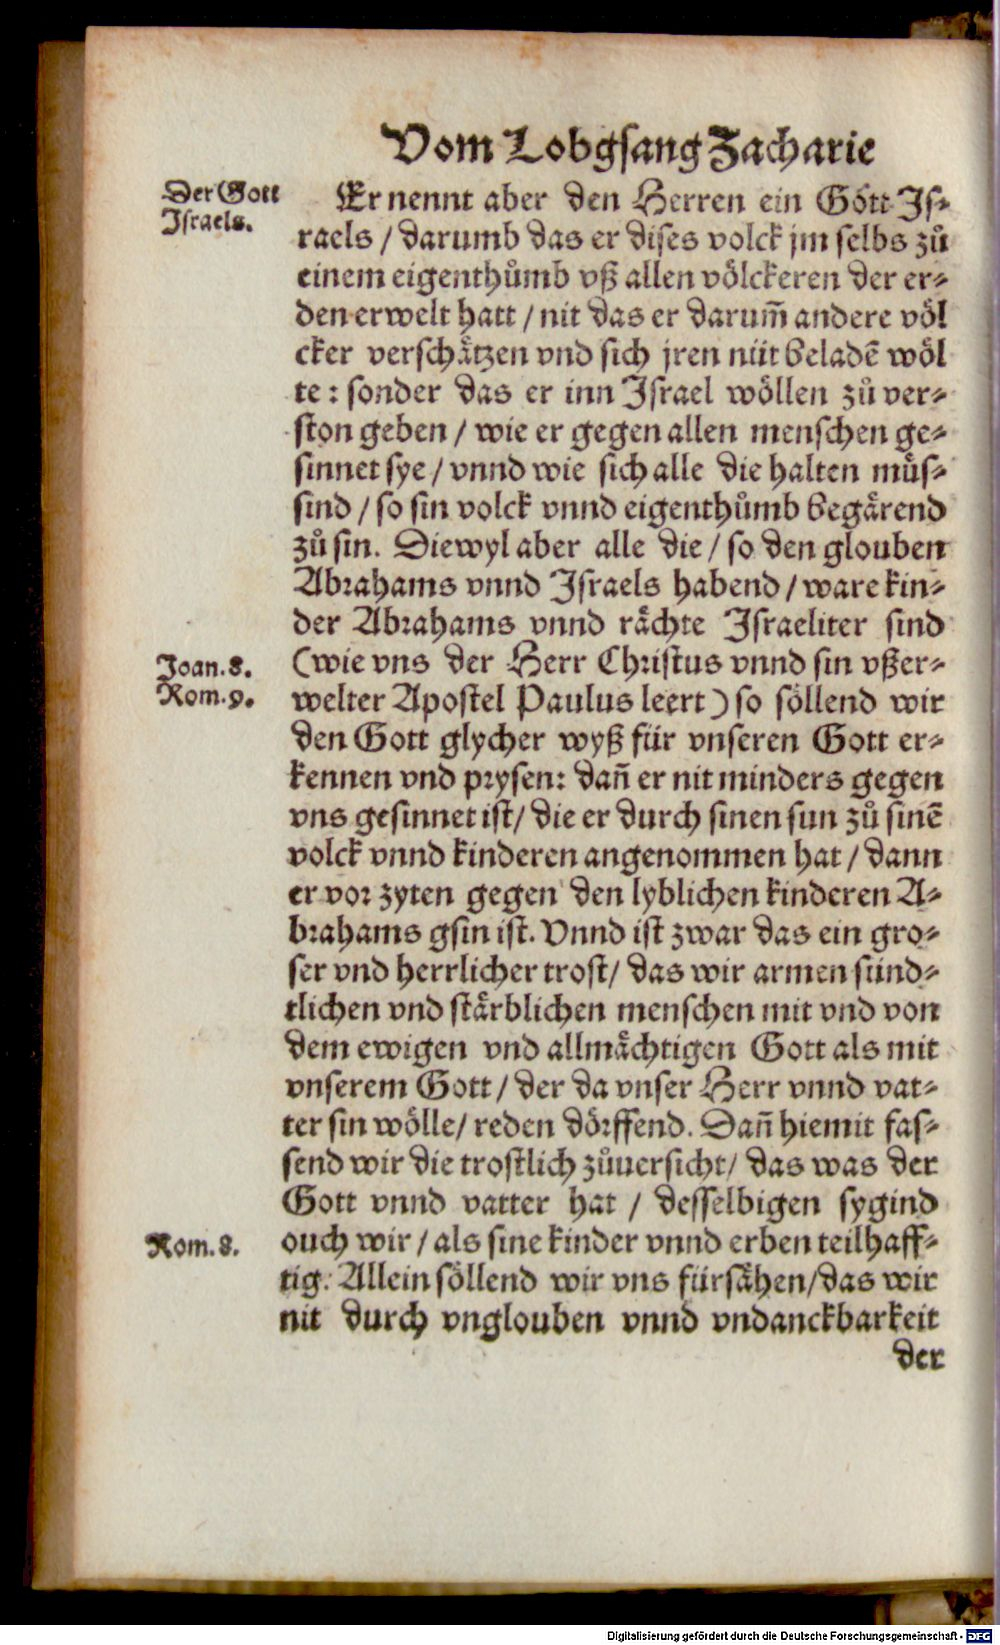 Vom Lobgsang Zacharie
Der Gott
Israels.
Er nennt aber den Herren ein Gott Is⸗
raels / darumb das er dises volck jm selbs zů
einem eigenthůmb vß allen völckeren der er⸗
den erwelt hatt / nit das er darum̃ andere völ
cker verschätzen vnd sich jren nüt beladē wöl
te: sonder das er inn Israel wöllen zů ver⸗
ston geben / wie er gegen allen menschen ge⸗
sinnet sye / vnnd wie sich alle die halten müs⸗
sind / so sin volck vnnd eigenthůmb begärend
zů sin. Diewyl aber alle die / so den glouben
Abrahams vnnd Israels habend / ware kin⸗
der Abrahams vnnd rächte Israeliter sind
Joan. 8.
(wie vns der Herr Christus vnnd sin vßer⸗
Rom. 9.
welter Apostel Paulus leert) so söllend wir
den Gott glycher wyß für vnseren Gott er⸗
kennen vnd prysen: dañ er nit minders gegen
vns gesinnet ist / die er durch sinen sun zů sinē
volck vnnd kinderen angenommen hat / dann
er vor zyten gegen den lyblichen kinderen A⸗
brahams gsin ist. Vnnd ist zwar das ein gro⸗
ser vnd herrlicher trost / das wir armen sünd⸗
tlichen vnd stärblichen menschen mit vnd von
dem ewigen vnd allmächtigen Gott als mit
vnserem Gott / der da vnser Herr vnnd vat⸗
ter sin wölle / reden dörffend. Dañ hiemit fas⸗
send wir die trostlich zůuersicht / das was der
Gott vnnd vatter hat / desselbigen sygind
Rom. 8.
ouch wir / als sine kinder vnnd erben teilhaff⸗
tig. Allein söllend wir vns fürsähen / das wir
nit durch vnglouben vnnd vndanckbarkeit
der
Digitalisierung gefördert durch die Deutsche Forschungsgemeinschaft - DFG